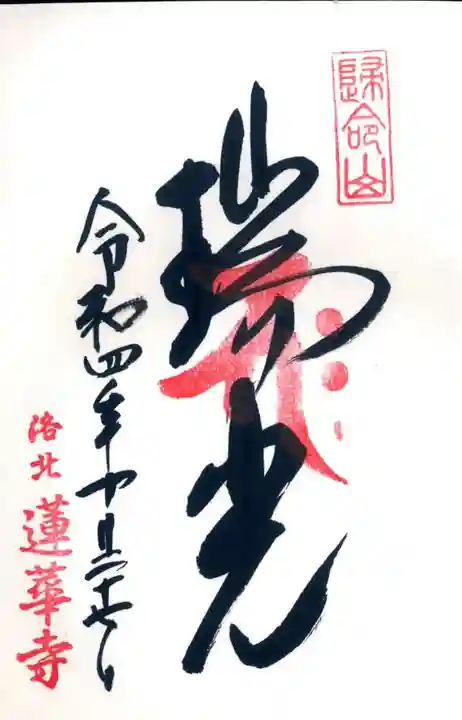 歸命山
瑞光
令和四年十月二十七日
洛北
蓮華寺